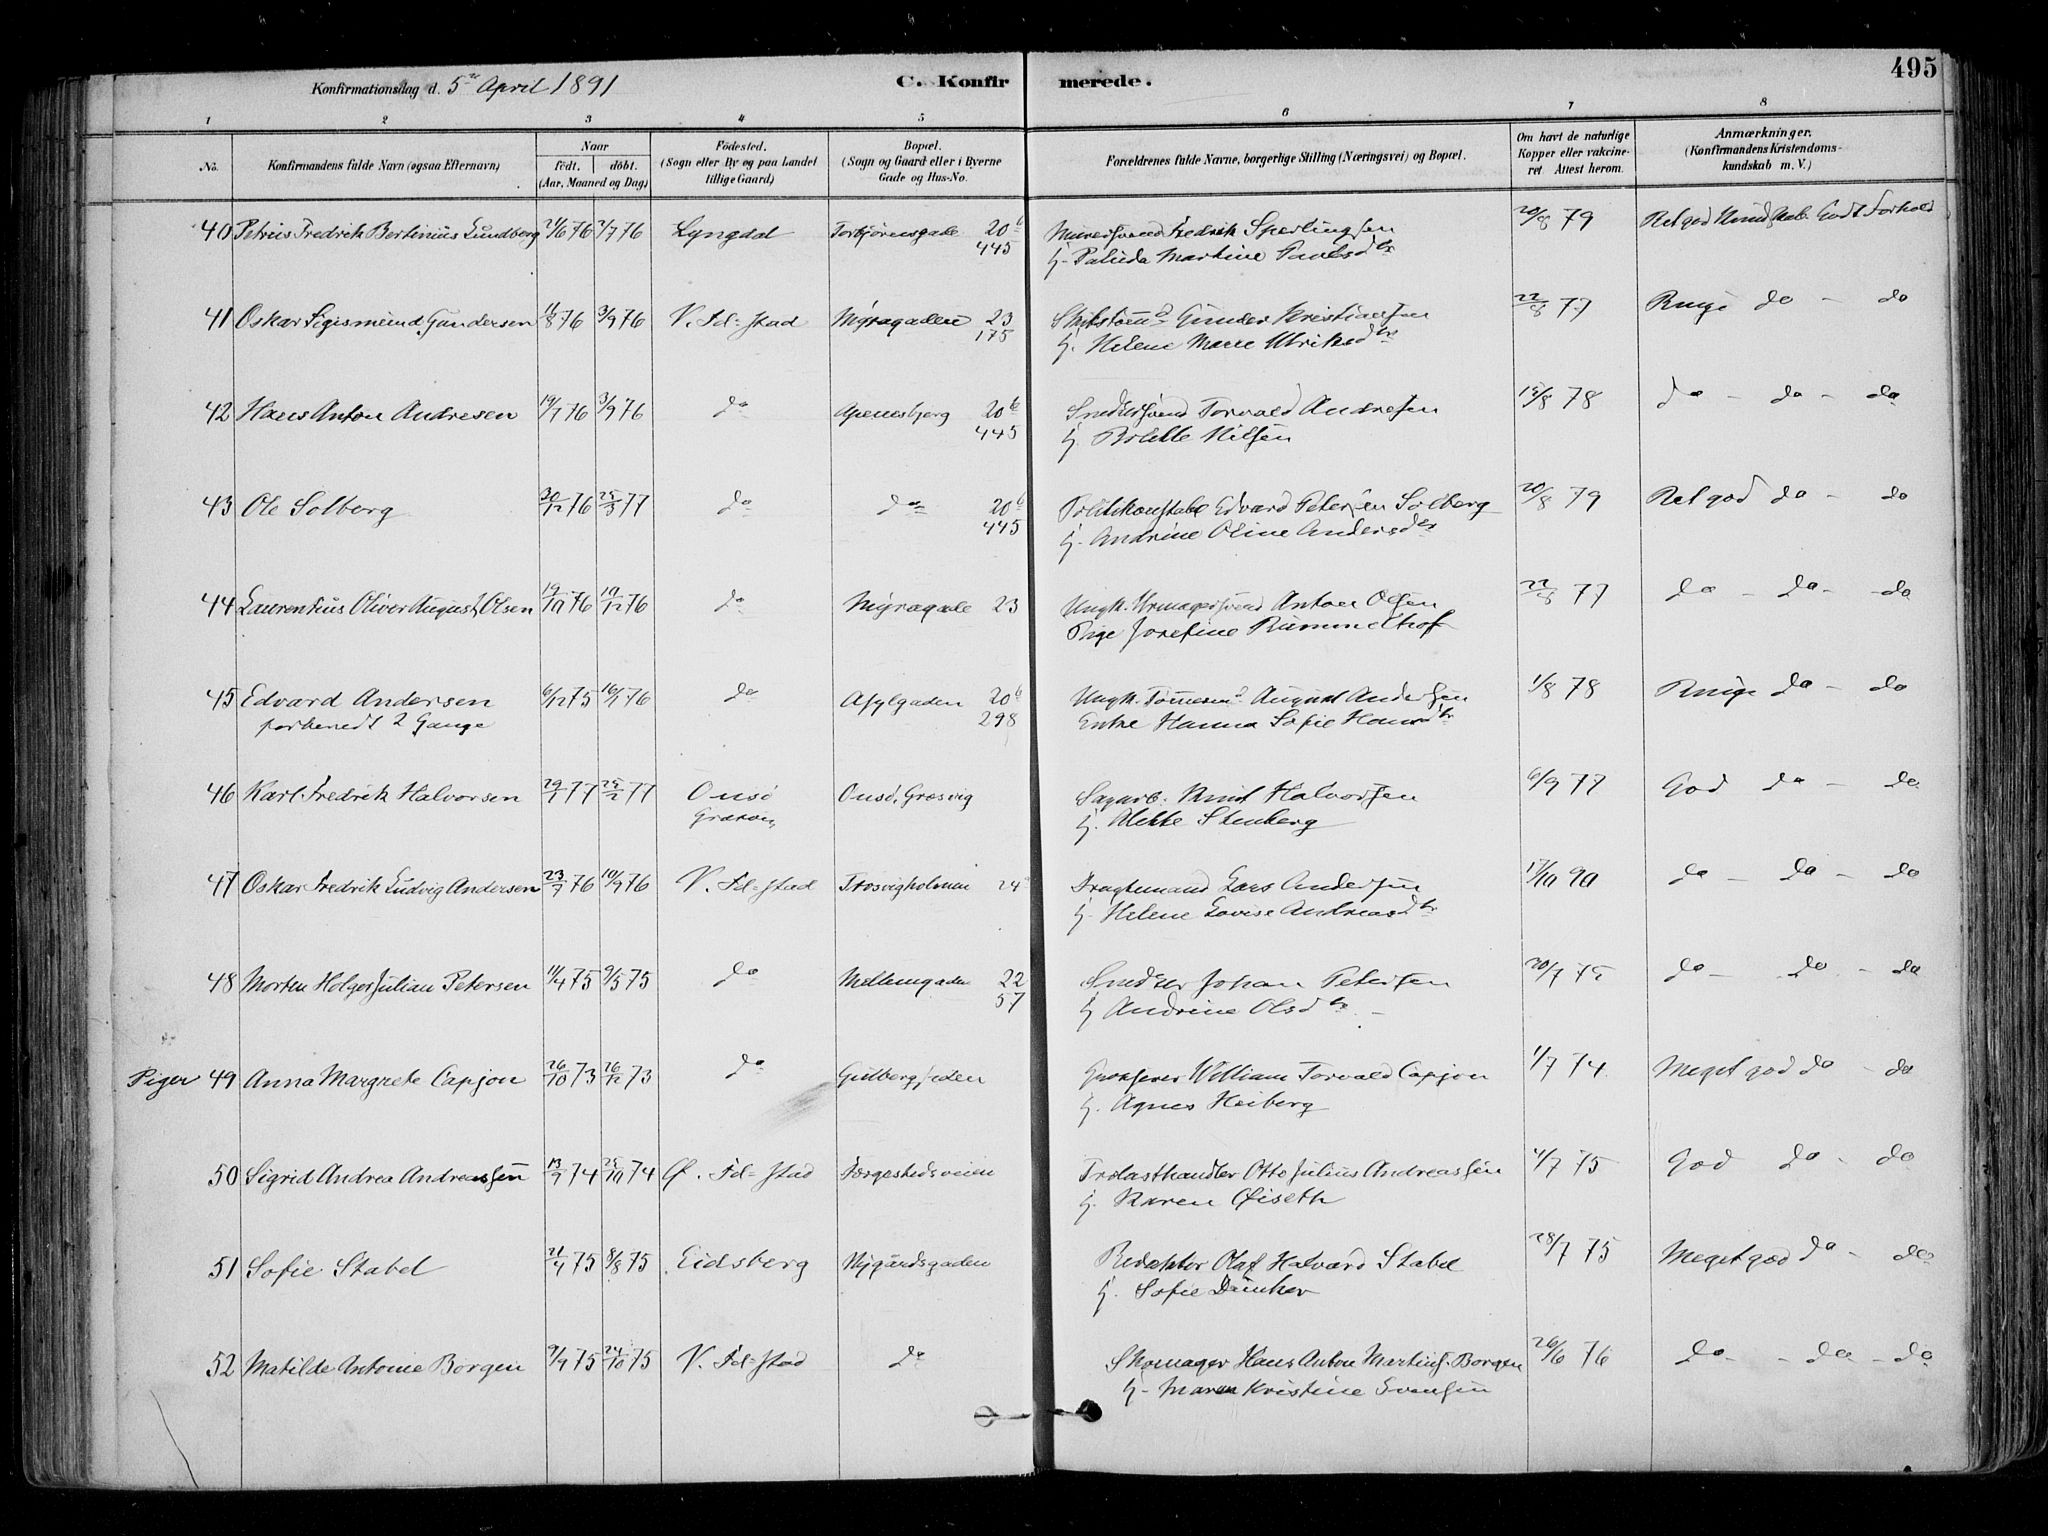 495
Konfirmationsdag d. 5te April 1891
C. Konfirmerede.
1 2 3 4 5 6 7 8
No.
Konfirmandens fulde Navn (ogsaa Efternavn)
Naar
født. døbt.
(Aar, Maaned og Dag)
Fødested.
(Sogn eller By og paa Landet
tillige Gaard)
Bopæl.
(Sogn og Gaard eller i Byerne
Gade og Hus-No.
Forældrenes fulde Navne, borgerlige Stilling (Næringsvei) og Bopæl.
Om havt de naturlige
Kopper eller vakcine-
ret Attest herom.
Anmærkninger.
(Konfirmandens Kristendoms-
kundskab m. V.)
40 Petrus Fredrik Bertinius Lundberg 21/6 76 2/7 76 Lyngdal Torbjørnsgade 20b Murersvend Fredrik Sperlingsen 20/8 79 Ret god Kundskab. Godt Forhold
445 H. Palida Martine Paulsdtr
41 Oskar Sigismund Gundersen 11/8 76 3/9 76 V. Fd=stad Myragaden 23 Skibstømd Gunder Kristiansen 22/8 77 Ringe do - do
175 H. Helene Marie Ulriksdtr
42 Hans Anton Andresen 19/7 76 3/9 76 do Apenesbjerg 20b Snedkersvend Torvald Andresen 15/8 78 do - do - do
445 H. Bolette Nilsen
43 Ole Solberg 30/12 76 25/3 77 do do 20b Politikonstabel Edvard Petersen Solberg 20/8 79 Ret god do - do
445 H. Andrine Oline Andersdtr
44 Laurentius Oliver August Olsen 19/10 76 10/12 76 do Myragade 23 Ungk. Urmagersvend Anton Olsen 22/8 77 do - do - do
Pige Josefine Rummelhof
45 Edvard Andersen 6/12 75 16/1 76 do Asylgaden 20b Ungk. Tømmermd August Andersen 1/8 78 Ringe do - do
forberedt 2 Gange 298 Enke Hanna Sofie Hansdtr
46 Karl Fredrik Halvorsen 29/1 77 25/2 77 Onsø Onsø, Græsvig Sagarb. Knut Halvorsen 6/9 77 God do - do
H. Alette Stenberg
47 Oskar Fredrik Ludvig Andersen 23/7 76 10/9 76 V. Fd=stad Trosvigholman 24 Dragtemand Lars Andersen 17/10 90 do - do - do
H. Helene Lovise Andreasdtr
48 Morten Holger Julian Petersen 11/4 75 9/5 75 do Mellemgaden 22 Snedker Johan Petersen 20/7 75 do - do - do
57 H Andrine Olsdtr -
Piger 49 Anna Margrete Capjon 26/10 73 26/12 73 do Gulbergsjeden Grosserer William Torvald Capjon 1/7 74 Meget god do - do
H. Agnes Heiberg
50 Sigrid Andrea Andreassen 13/9 74 25/10 74 Ø. Fd=stad Færgestedsveien Trælasthandler Otto Julius Andreassen 4/7 75 God do - do
H. Karen Øiseth
51 Sofie Stabel 21/4 75 8/8 75 Eidsberg Nygårdsgaden Redaktør Olaf Halvard Stabel 28/7 75 Meget god do - do
H. Sofie Dunker
52 Matilde Antonie Borgen 9/9 75 24/10 75 V. Fd=stad do Skomager Hans Anton Martins. Borgen 26/6 76 do - do - do
H. Maren Kristine Svensen